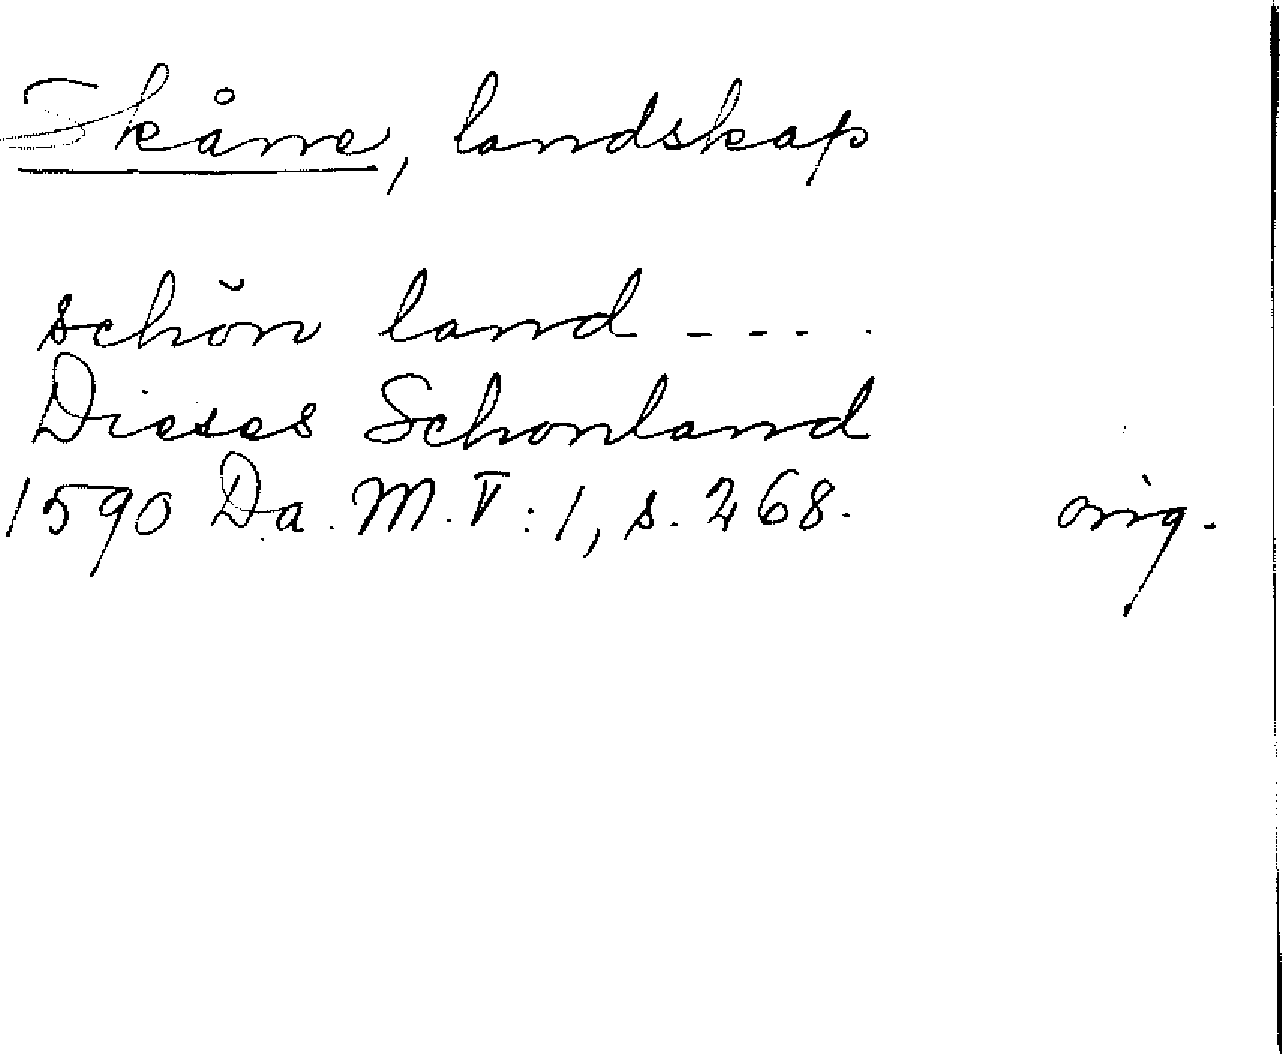 Skåne, landskap
schŏn land - - - .
Dieses Schonland
1590 Da. M. V: 1, s. 268. orig.